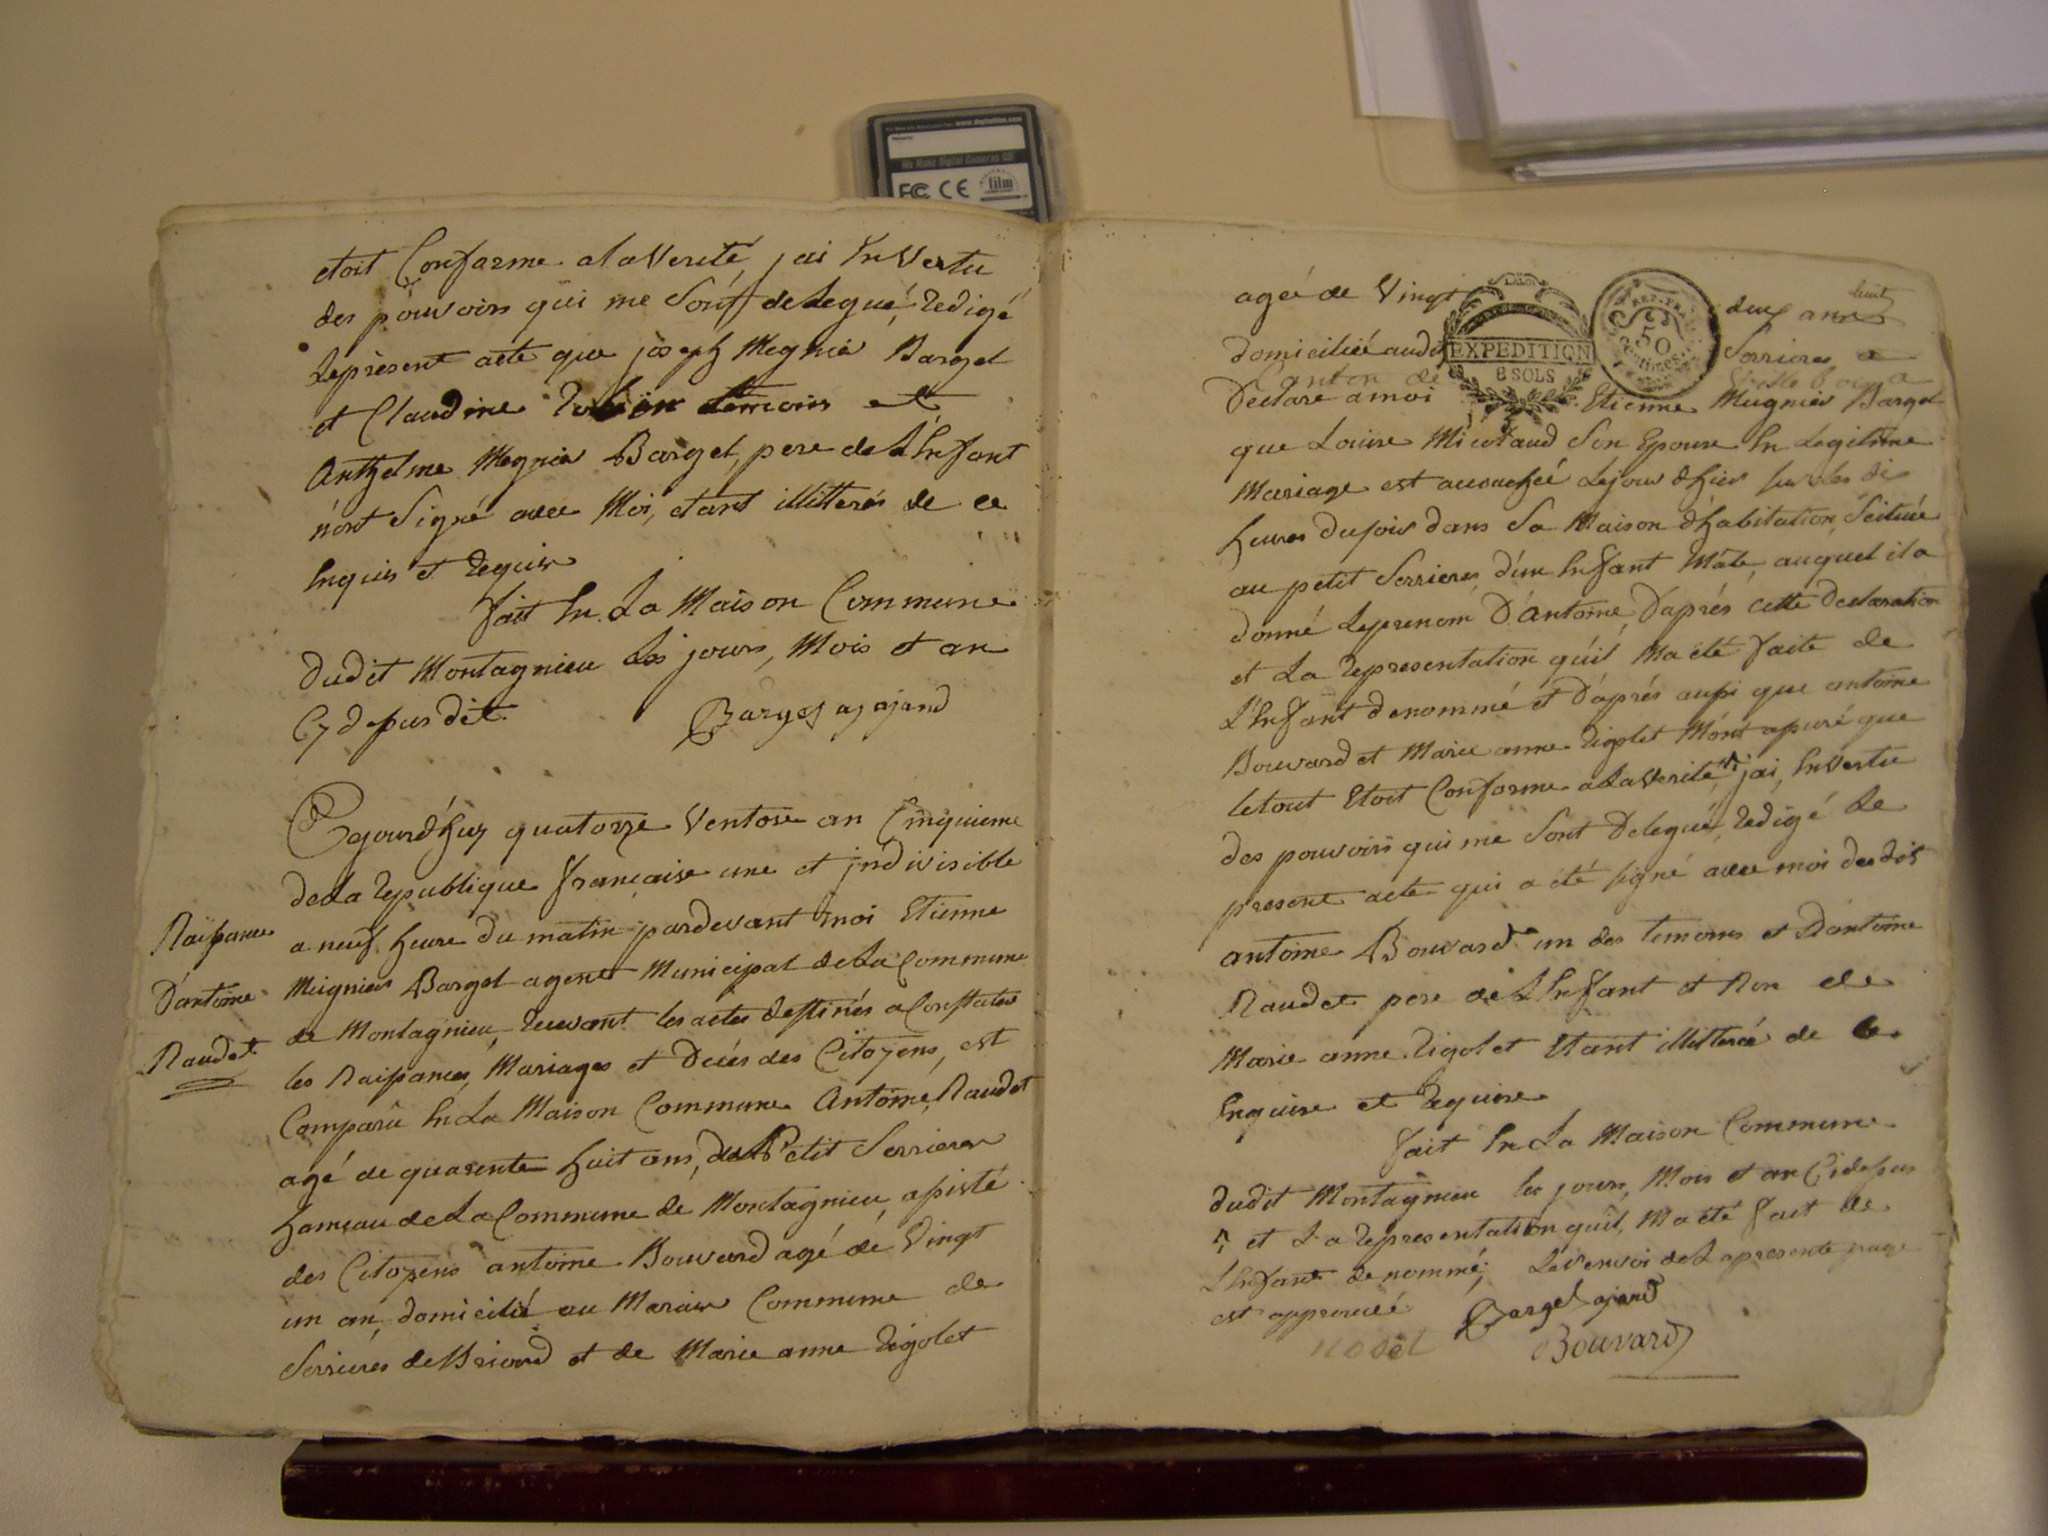 We Make Digital Cameras GO
FC CE film
etoit Conforme alaverité, jai En Vertu
des pouvoirs qui me Sont delegué, Redigé
Leprésent acte que joseph Megnié Barget
et Claudine temoins et
Anthelme Megnié Barget, pere de L'Enfant
n'ont Signé avec Moi, etant illitterés de ce
Enquis et Requis
fait En La Maison Commune
dudit Montagnieu Les jours, Mois et an
Cy depus dit. Barget ag
Cejourd'huy quatorze Ventose an Cinquieme
dela Republique française une et indivisible
Naissance
a neuf heure du matin pardevant moi Etienne
D'antoine
Meignier Barget agent Municipal dela Commune
de Montagnieu, Recevant les actes destinés a Constater
Naudet
les Naissances, Mariages et Décés des Citoyens, est
Comparû En La Maison Commune Antoine Naudet
agé de quarente huit ans, de Petit Serrieres
hameau dela Commune de Montagnieu, assisté
des Citoyens antoine Bouvard agé de Vingt
un an, domicilié au Marais Commune de
Serrieres de Briord et de Marie anne Rigolet
agée de Vingt deux années
huit
LALOI
REP. FRA.
50
Centimes
EXPEDITION
8 SOLS
domiciliée audit Serrieres a
Canton de
Declaré a moi Etienne Meignier Barget
que Louise Micoraud Son Epouse En Legitime
Mariage est accouchée Lejour d'hier sur les di
heures dusoir dans Sa Maison d'habitation Scituée
au petit Serrieres, d'un Enfant Mâle, auquel il a
donné Leprenom D'antoine, D'aprés cette declaration
et La Representation qu'il Ma eté faite de
L'Enfant denommé et D'aprés aussi que antoine
Bouvard et Marie anne Rigolet M'ont assuré que
letout Etoit Conforme alaverité, jai, En Vertu
des pouvoirs qui me Sont Delegué, Redigé Le
present acte qui a été signé avec moi dudit
antoine Bouvard un des temoins et D'antoine
Naudet pere de L'Enfant et Non de
Marie anne Rigolet Etant illitterée de Ce
Enquise et Requise
fait En La Maison Commune
dudit Montagnieu les jours, Mois et an Cidessus
et La Representation qu'il Ma été fait de
L'Enfant denommé; Le renvoi dela presente page
est approuvé Barget
nodet Bouvard